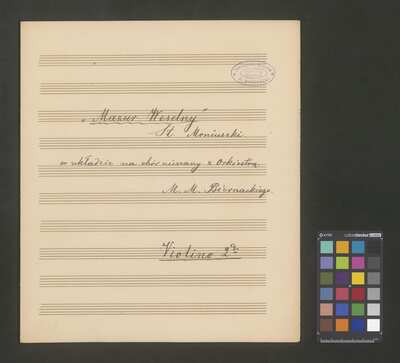 „Mazur Weselny"
St. Moniuszki
w układzie na chór mieszany z Orkiestrą
M. M. Biernackiego.
Violino 2do